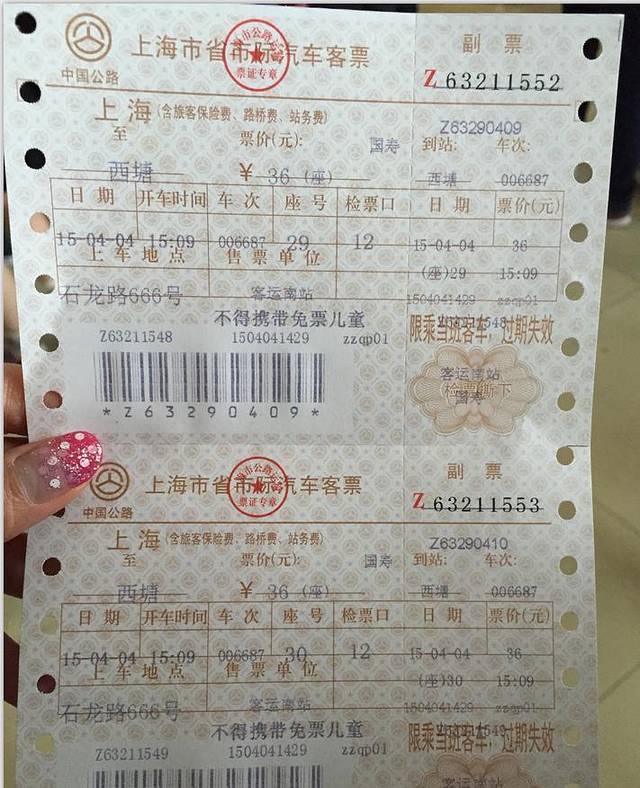 中国公路
上海市省市际汽车客票
票证专章
副票
Z 63211552
上海(含旅客保险费、路桥费、站务费)
至
票价(元):
国寿
Z63290409
到站: 车次:
西塘
¥ 36 (座)
西塘 006687
日期 开车时间 车次 座号 检票口 日期 票价(元)
15-04-04 15:09 006687 29 12 15-04-04 36
上车地点 售票单位
(座)29 15:09
石龙路666号
客运南站
1504041429 zzqp01
不得携带免票儿童
限乘当班客车,过期失效
Z63211548 1504041429 zzqp01
客运南站
检票撕下
国寿
*Z63290409*
中国公路
上海市省市际汽车客票
票证专章
副票
Z 63211553
上海(含旅客保险费、路桥费、站务费)
至
票价(元):
国寿
Z63290410
到站: 车次:
西塘
¥ 36 (座)
西塘 006687
日期 开车时间 车次 座号 检票口 日期 票价(元)
15-04-04 15:09 006687 30 12 15-04-04 36
上车地点 售票单位
(座)30 15:09
石龙路666号
客运南站
1504041429 zzqp01
不得携带免票儿童
限乘当班客车,过期失效
Z63211549 1504041429 zzqp01
客运南站